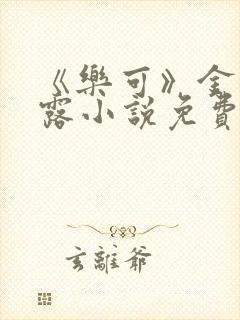 《樂可》金
露小說免費
玄離爺